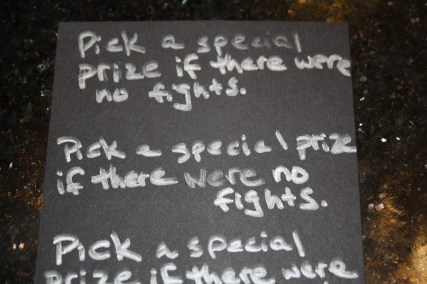 Pick a special
prize if there were
no fights.
Pick a special prize
if there were no
fights.
Pick a special
prize if there were